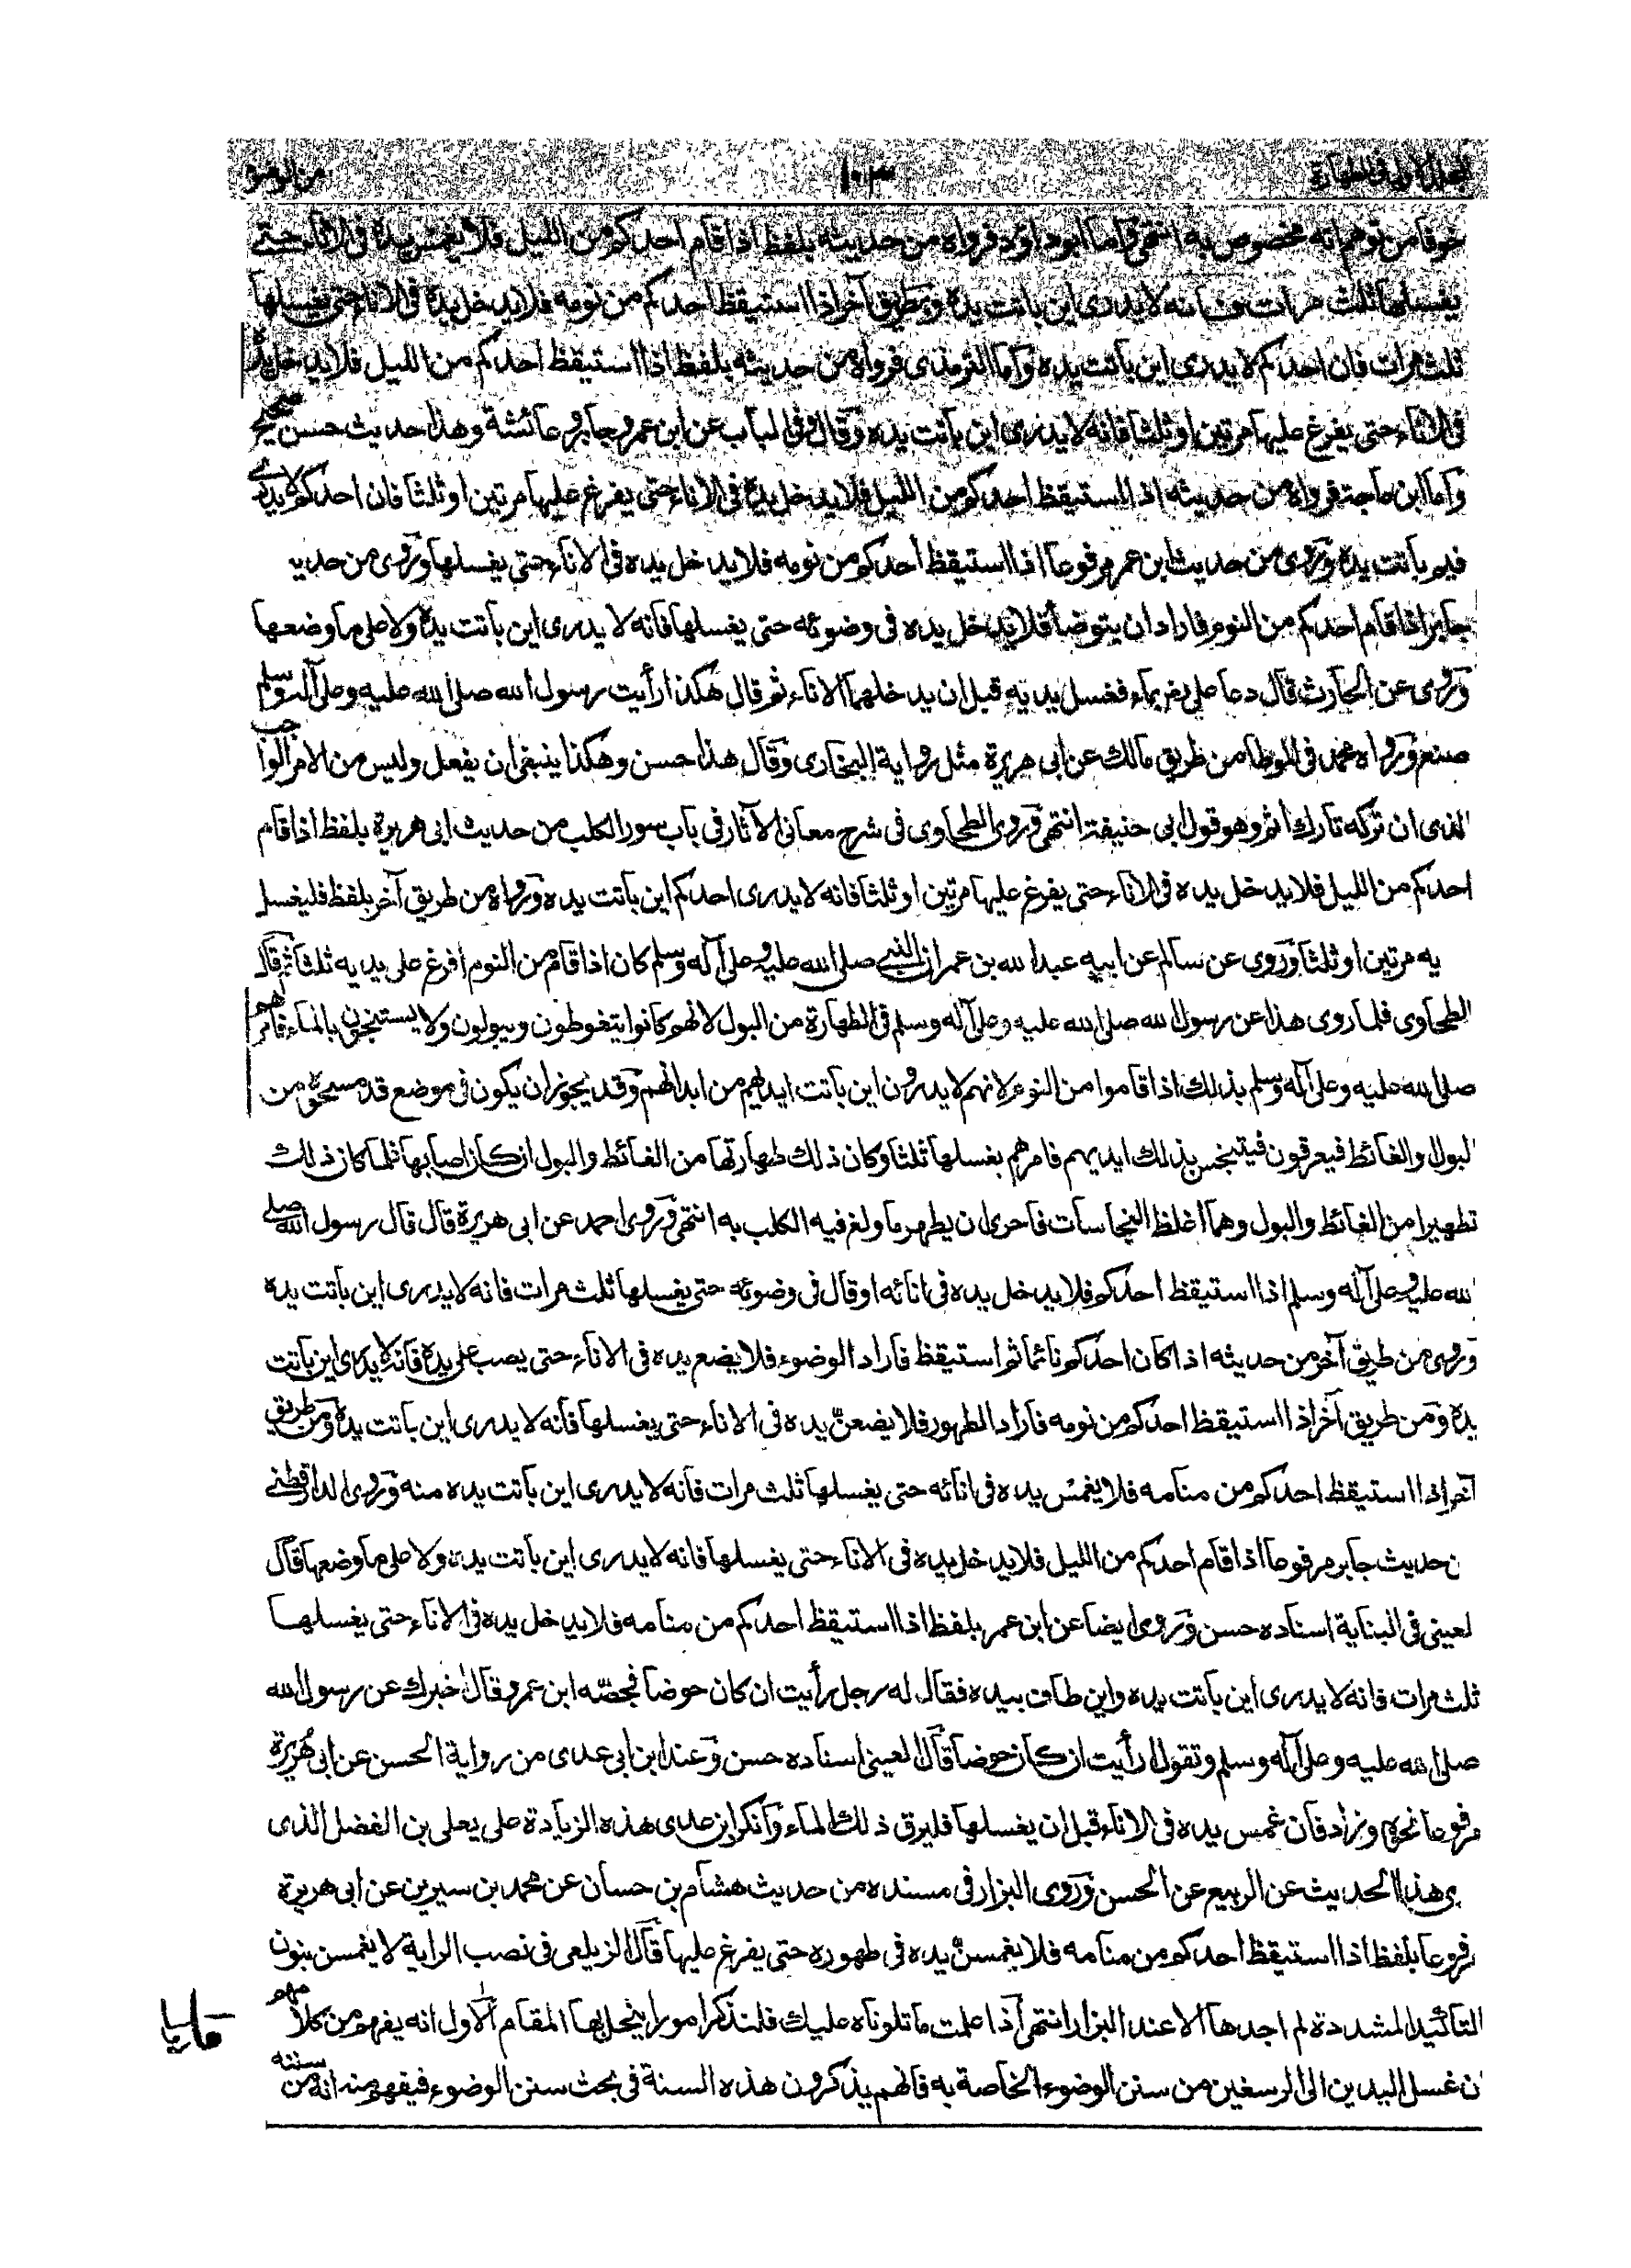 ١٠٣
خوفا من توهم انه مخصوص به انتهى وأما ابوداؤد فرواه من حديثه بلفظ اذا قام احدكم من الليل فلا يغمس يده فى الاناء حتى
يغسلها ثلث مرات فانه لا يدرى اين باتت يده وبطريق آخر اذا استيقظ احدكم من نومه فلا يدخل يده فى الاناء حتى يغسلها
ثلث مرات فان احدكم لا يدرى اين باتت يده وأما الترمذى فرواه من حديثه بلفظ اذا استيقظ احدكم من الليل فلا يدخل يده
فى الاناء حتى يفرغ عليها مرتين او ثلثا فانه لا يدرى اين باتت يده وقال وفى الباب عن ابن عمر وجابر وعائشة وهذا حديث حسن صحيح
وأما ابن ماجة فرواه من حديثه اذا استيقظ احدكم من الليل فلا يدخل يده فى الاناء حتى يفرغ عليها مرتين او ثلثا فان احدكم لا يدرى
فيم باتت يده وروى من حديث ابن عمر مرفوعا اذا استيقظ احدكم من نومه فلا يدخل يده فى الاناء حتى يغسلها وروى من حديث
جابر اذا قام احدكم من النوم فاراد ان يتوضأ فلا يدخل يده فى وضوئه حتى يغسلها فانه لا يدرى اين باتت يده ولا على ما وضعها
وروى عن الحارث قال دعا على بماء فغسل يديه قبل ان يدخلهما الاناء ثم قال هكذا رأيت رسول الله صلى الله عليه وعلى آله وسلم
صنع ورواه محمد فى الموطا من طريق مالك عن ابى هريرة مثل رواية البخارى وقال هذا حسن وهكذا ينبغى ان يفعل وليس من الامر الواجب
الذى ان تركه تارك اثم وهو قول ابى حنيفة انتهى وروى الطحاوى فى شرح معانى الآثار فى باب سور الكلب من حديث ابى هريرة بلفظ اذا قام
احدكم من الليل فلا يدخل يده فى الاناء حتى يفرغ عليها مرتين او ثلثا فانه لا يدرى احدكم اين باتت يده ورواه من طريق آخر بلفظ فليغسل
يه مرتين او ثلثا وروى عن سالم عن ابيه عبد الله بن عمر ان النبى صلى الله عليه وعلى آله وسلم كان اذا قام من النوم افرغ على يديه ثلثا ثم قال
الطحاوى فلما روى هذا عن رسول الله صلى الله عليه وعلى آله وسلم فى الطهارة من البول لانهم كانوا يتغوطون ويبولون ولا يستنجون بالماء فامرهم
صلى الله عليه وعلى آله وسلم بذلك اذا قاموا من النوم لانهم لا يدرون اين باتت ايديهم من ابدانهم وقد يجوز ان يكون فى موضع قد مسحوه من
البول والغائط فيعرقون فيتنجس بذلك ايديهم فامرهم بغسلها ثلثا وكان ذلك طهارتها من الغائط والبول ان كان اصابها فلما كان ذلك
تطهيرا من الغائط والبول وهما اغلظ النجاسات فاحرى ان يطهر ما ولغ فيه الكلب به انتهى وروى احمد عن ابى هريرة قال قال رسول الله صلى
الله عليه وعلى آله وسلم اذا استيقظ احدكم فلا يدخل يده فى انائه او قال فى وضوئه حتى يغسلها ثلث مرات فانه لا يدرى اين باتت يده
وروى من طريق آخر من حديثه اذا كان احدكم نائما ثم استيقظ فاراد الوضوء فلا يضع يده فى الاناء حتى يصب على يده فانه لا يدرى اين باتت
يده ومن طريق آخر اذا استيقظ احدكم من نومه فاراد الطهور فلا يضعن يده فى الاناء حتى يغسلها فانه لا يدرى اين باتت يده ومن طريق
آخر اذا استيقظ احدكم من منامه فلا يغمس يده فى انائه حتى يغسلها ثلث مرات فانه لا يدرى اين باتت يده منه وروى الدارقطنى
ن حديث جابر مرفوعا اذا قام احدكم من الليل فلا يدخل يده فى الاناء حتى يغسلها فانه لا يدرى اين باتت يده ولا على ما وضعها قال
لعينى فى البناية اسناده حسن وروى ايضا عن ابن عمر بلفظ اذا استيقظ احدكم من منامه فلا يدخل يده فى الاناء حتى يغسلها
ثلث مرات فانه لا يدرى اين باتت يده واين طافت بيده فقال له رجل رأيت ان كان حوضا فحصبه ابن عمر وقال اخبرك عن رسول الله
صلى الله عليه وعلى آله وسلم وتقول ارأيت ان كان حوضا قال العينى اسناده حسن وعند ابن ابى عدى من رواية الحسن عن ابى هريرة
مرفوعا نحوه وزاد فان غمس يده فى الاناء قبل ان يغسلها فليرق ذلك الماء وانكر ابن عدى هذه الزيادة على يعلى بن الفضل الذى
وى هذا الحديث عن الربيع عن الحسن وروى البزار فى مسنده من حديث هشام بن حسان عن محمد بن سيرين عن ابى هريرة
رفوعا بلفظ اذا استيقظ احدكم من منامه فلا يغمسن يده فى طهوره حتى يفرغ عليها قال الزيلعى فى نصب الراية لا يغمسن بنون
التاكيد المشددة لم اجدها الا عند البزار انتهى اذا علمت ما تلوناه عليك فلنذكر امورا ينحل بها المقام الاول انه يفهم من كلامهم
ن غسل اليدين الى الرسغين من سنن الوضوء الخاصة به فانهم يذكرون هذه السنة فى بحث سنن الوضوء فيفهم منه انه من سننه